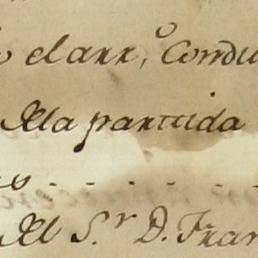 el arr,º Condu
A la partida
Al S.r D. Fran